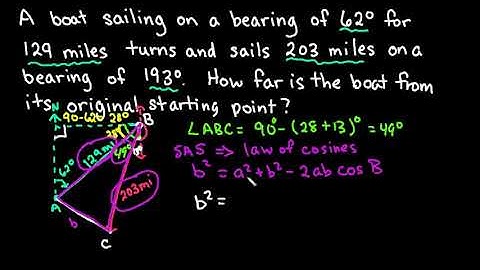 A boat sailing on a bearing of 62° for
129 miles turns and sails 203 miles on a
bearing of 193°. How far is the boat from
its original starting point?
N
90-62= 28°
B
28°
49°
13°
62°
129mi
203mi
A
b
C
∠ABC = 90° - (28+13)° = 49°
SAS => law of cosines
b² = a² + b² - 2ab cos B
b² =